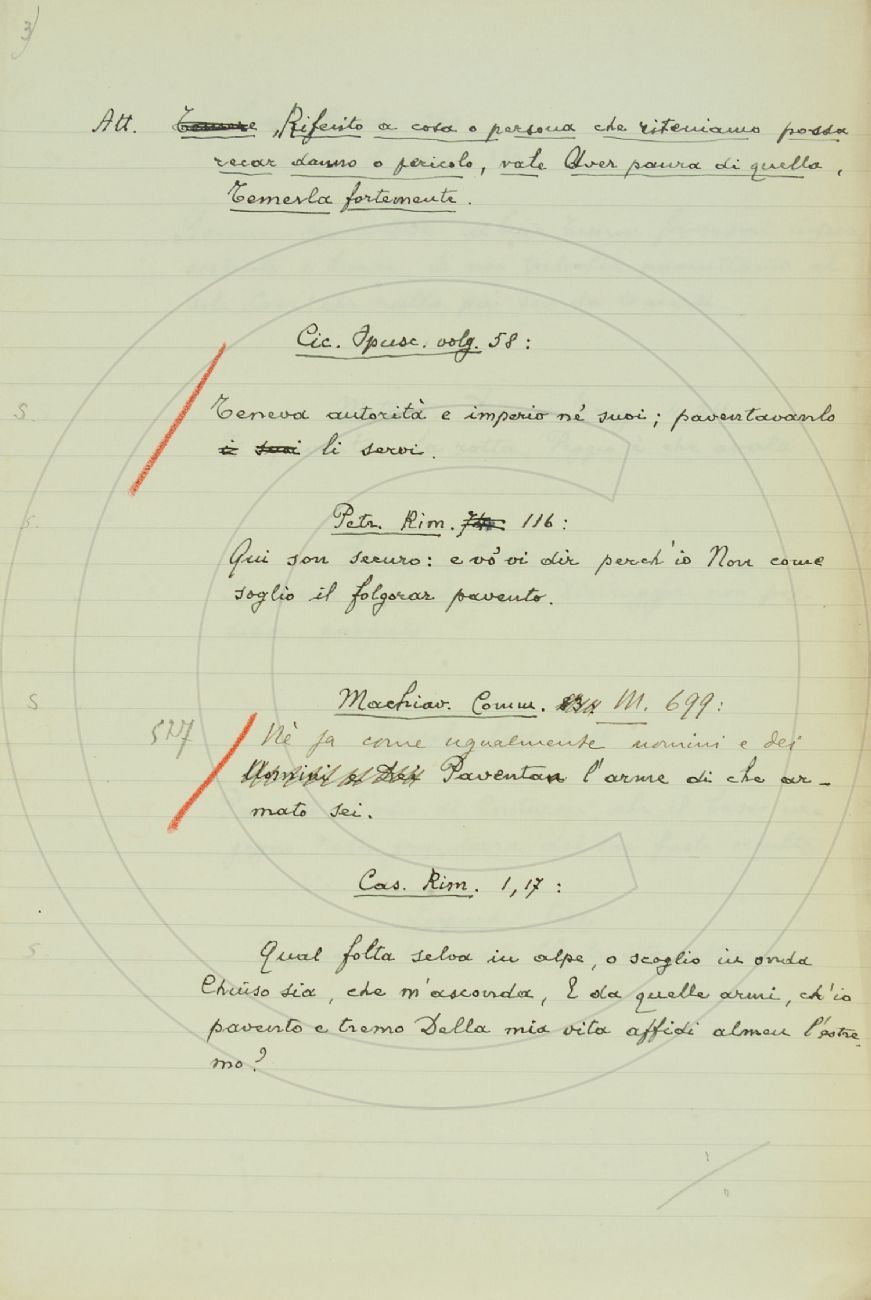 3)
Att. Riferito a cosa o persona che riteniamo possa
recar danno o pericolo, vale Aver paura di quella,
Temerla fortemente.
Cic. Opusc. volg. 58:
S. Teneva autorità e imperio né suoi; paventavanlo
i suoi li servi.
S. Petr. Rim. 116:
Qui son securo: e vo' vi dir perch'io Non come
soglio il folgorar pavento.
S Machiav. Comm. III. 699:
527 Nè fa come ugualmente uomini e dei
Uomini e Dei Paventan l'arme di che ar-
mato sei.
Cas. Rim. 1, 17:
S. Qual folta selva in alpe, o scoglio in onda
Chiuso sia, che m'asconda, E da quelle armi, ch'io
pavento e tremo Della mia vita affidi almen l'estre-
mo?